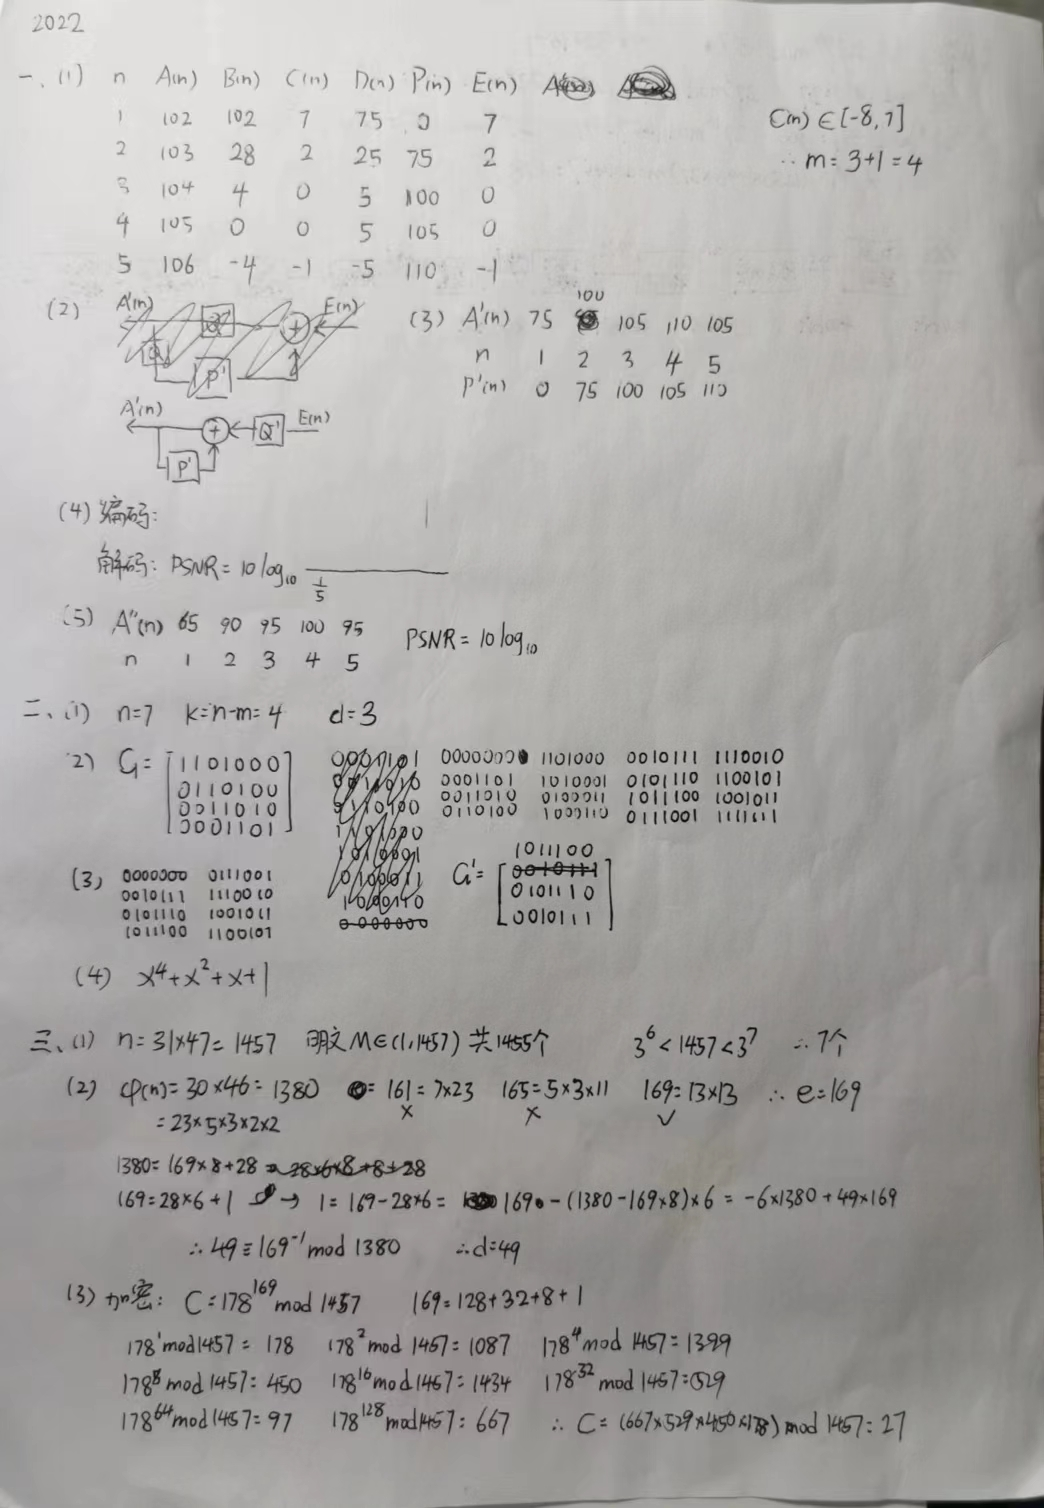 2022
一、(1) n A(n) B(n) C(n) D(n) P(n) E(n)
1 102 102 7 75 0 7
C(n) ∈ [-8, 7]
2 103 28 2 25 75 2
∴ m = 3+1 = 4
3 104 4 0 5 100 0
4 105 0 0 5 105 0
5 106 -4 -1 -5 110 -1
(2) A'(n) E(n)
P'
A'(n) + Q' E(n)
P'
(3) A'(n) 75 100 105 110 105
n 1 2 3 4 5
P'(n) 0 75 100 105 110
(4) 编码:
解码: PSNR = 10 log₁₀ ———
1/5
(5) A''(n) 65 90 95 100 95
n 1 2 3 4 5
PSNR = 10 log₁₀
二、(1) n=7 k=n-m=4 d=3
(2) G = [1101000
0110100
0011010
0001101]
0000000 1101000 0010111 1110010
0001101 1010001 0101110 1100101
0011010 0100011 1011100 1001011
0110100 1000110 0111001 1111111
(3) 0000000 0111001
0010111 1110010
0101110 1001011
1011100 1100101
G' = [1011100
0101110
0010111]
(4) x⁴+x²+x+1
三、(1) n = 31×47 = 1457 明文M∈(1,1457) 共1455个 3⁶ < 1457 < 3⁷ ∴ 7个
(2) φ(n) = 30×46 = 1380 = 161 = 7×23 165 = 5×3×11 169 = 13×13 ∴ e = 169
× × √
= 23×5×3×2×2
1380 = 169×8+28
169 = 28×6+1 → 1 = 169-28×6 = 169 - (1380-169×8)×6 = -6×1380+49×169
∴ 49 ≡ 169⁻¹ mod 1380 ∴ d=49
(3) 加密: C = 178¹⁶⁹ mod 1457 169 = 128+32+8+1
178¹ mod 1457 = 178 178² mod 1457 = 1087 178⁴ mod 1457 = 1399
178⁸ mod 1457 = 450 178¹⁶ mod 1457 = 1434 178³² mod 1457 = 529
178⁶⁴ mod 1457 = 97 178¹²⁸ mod 1457 = 667 ∴ C = (667×529×450×178) mod 1457 = 27